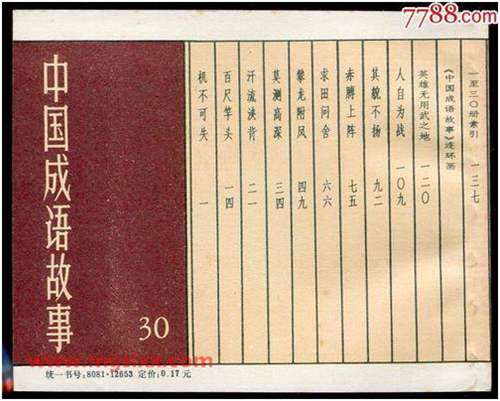 7788.com
中国成语故事
30
机不可失 一
百尺竿头 一四
汗流浃背 二一
莫测高深 三四
攀龙附凤 四九
求田问舍 六六
赤膊上阵 七五
其貌不扬 九二
人自为战 一〇九
英雄无用武之地 一二〇
《中国成语故事》连环画
一至三〇册索引 一三七
统一书号:8081·12653 定价:0.17 元